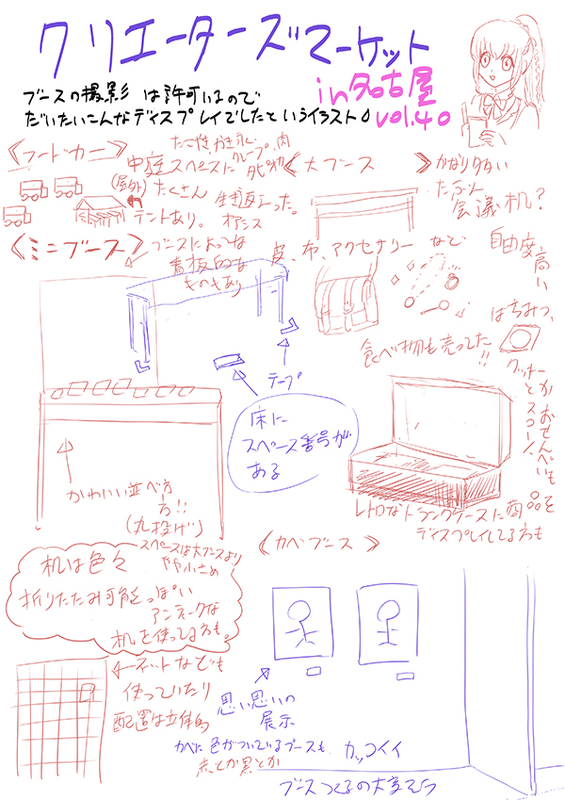 クリエーターズマーケット
in名古屋
vol.40
ブースの撮影は許可いるので
だいたいこんなディスプレイでしたというイラスト
《フードカー》
たこ焼き
肉
クレープ
中庭スペースに
(屋外)たくさん
生き返った。
テントあり。オアシス
《大ブース》
かなり多い
たぶん
会議机?
《ミニブース》
ブースによっては
看板的な
ものもあり
皮、布、アクセサリーなど
自由度
高い
はちみつ、
食べ物も売ってた!!
クッキーとか
スコーン
おせんべいも
テープ
床に
スペース番号が
ある
かわいい並べ方
を!!
(丸投げ)
レトロなトランクケースに商品を
ディスプレイしてる方も
スペースは大ブースより
やや小さめ
机は色々
折りたたみ可能っぽい
アンティークな
机を使ってる方も。
《カベブース》
ネットなども
使っていたり
配置は立体的
思い思いの
展示
かべに色がついているブースも
赤とか黒とか
カッコイイ
ブースつくるの大変そう